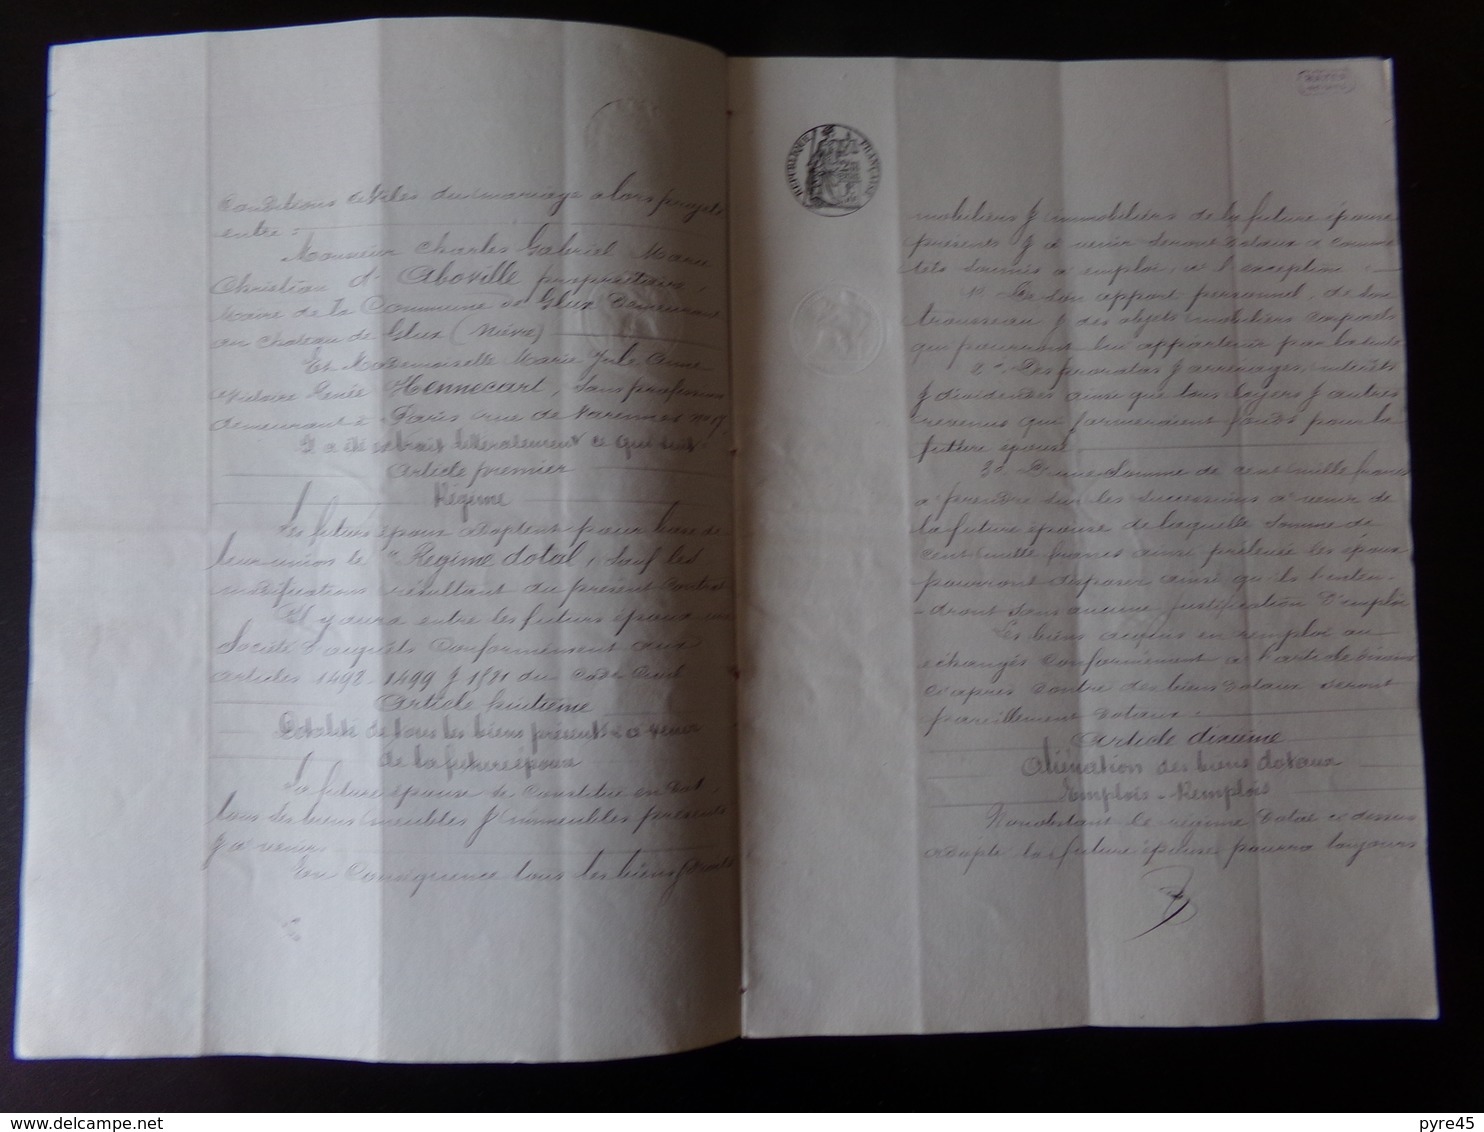 conditions civiles du mariage alors projeté
entre :
Monsieur Charles Gabriel Marie
Christian d'Aboville propriétaire,
Maire de la Commune de Glux demeurant
au château de Glux (Nièvre)
Et Mademoiselle Marie Julie Anne
Victoire Renée Hennecart, sans profession
demeurant à Paris rue de Varennes no
Il a été extrait littéralement ce qui suit
Article premier
Régime
Les futurs époux adoptent pour base de
leur union le Régime dotal, sauf les
modifications résultant du présent contrat
Il y aura entre les futurs époux une
Société d'acquêts conformément aux
articles 1498 - 1499 & 1581 du Code Civil
Article huitième
Dotalité de tous les biens présents & à venir
de la future épouse
La future épouse se constitue en dot
tous ses biens meubles & immeubles présents
& à venir.
En conséquence tous les biens & droits
RÉPUBLIQUE FRANÇAISE
mobiliers & immobiliers de la future épouse
présents & à venir seront dotaux & comme
tels soumis à emploi, à l'exception :
1º De son apport personnel, de son
trousseau & des objets mobiliers corporels
qui pourront lui appartenir par la suite
2º Des proratas & arrérages, intérêts
& dividendes ainsi que tous loyers & autres
revenus qui formeraient fonds pour la
future épouse
3º D'une somme de cent mille francs
à prendre sur les successions à venir de
la future épouse de laquelle somme de
cent mille francs ainsi prélevée les époux
pourront disposer ainsi qu'ils l'enten-
-dront sans aucune justification d'emploi
Les biens acquis en remploi ou
échangés conformément à l'article dixième
ci après contre des biens dotaux seront
pareillement dotaux.
Article dixième
Aliénation des biens dotaux
Emplois - Remplois
Nonobstant le régime dotal ci dessus
adopté la future épouse pourra toujours
pyre45